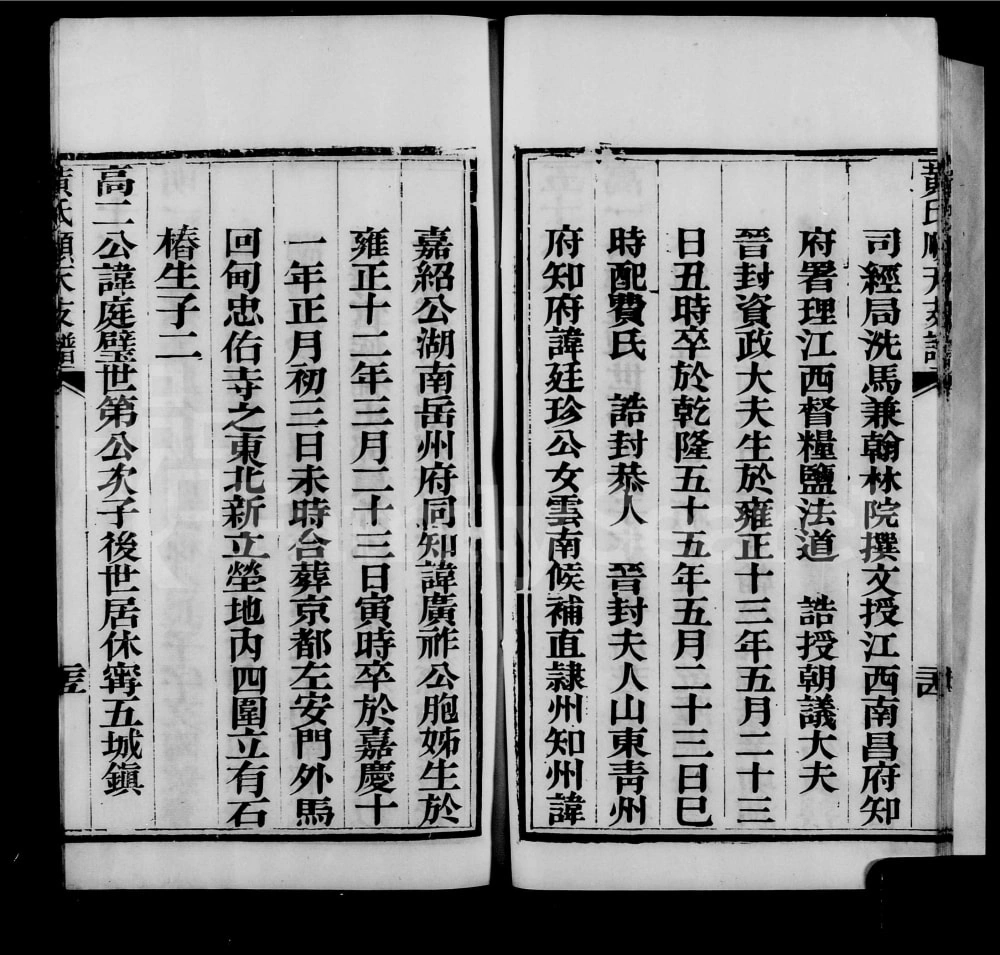 黃氏順天支譜
司經局洗馬兼翰林院撰文授江西南昌府知
府署理江西督糧鹽法道 誥授朝議大夫
晉封資政大夫生於雍正十三年五月二十三
日丑時卒於乾隆五十五年五月二十三日巳
時配費氏 誥封恭人 晉封夫人山東青州
府知府諱廷珍公女雲南候補直隸州知州諱
嘉紹公湖南岳州府同知諱廣祚公胞姊生於
雍正十二年三月二十三日寅時卒於嘉慶十
一年正月初三日未時合葬京都左安門外馬
回甸忠佑寺之東北新立塋地內四圍立有石
樁生子二
高二公諱庭璧世第公次子後世居休寧五城鎮
黃氏順天支譜